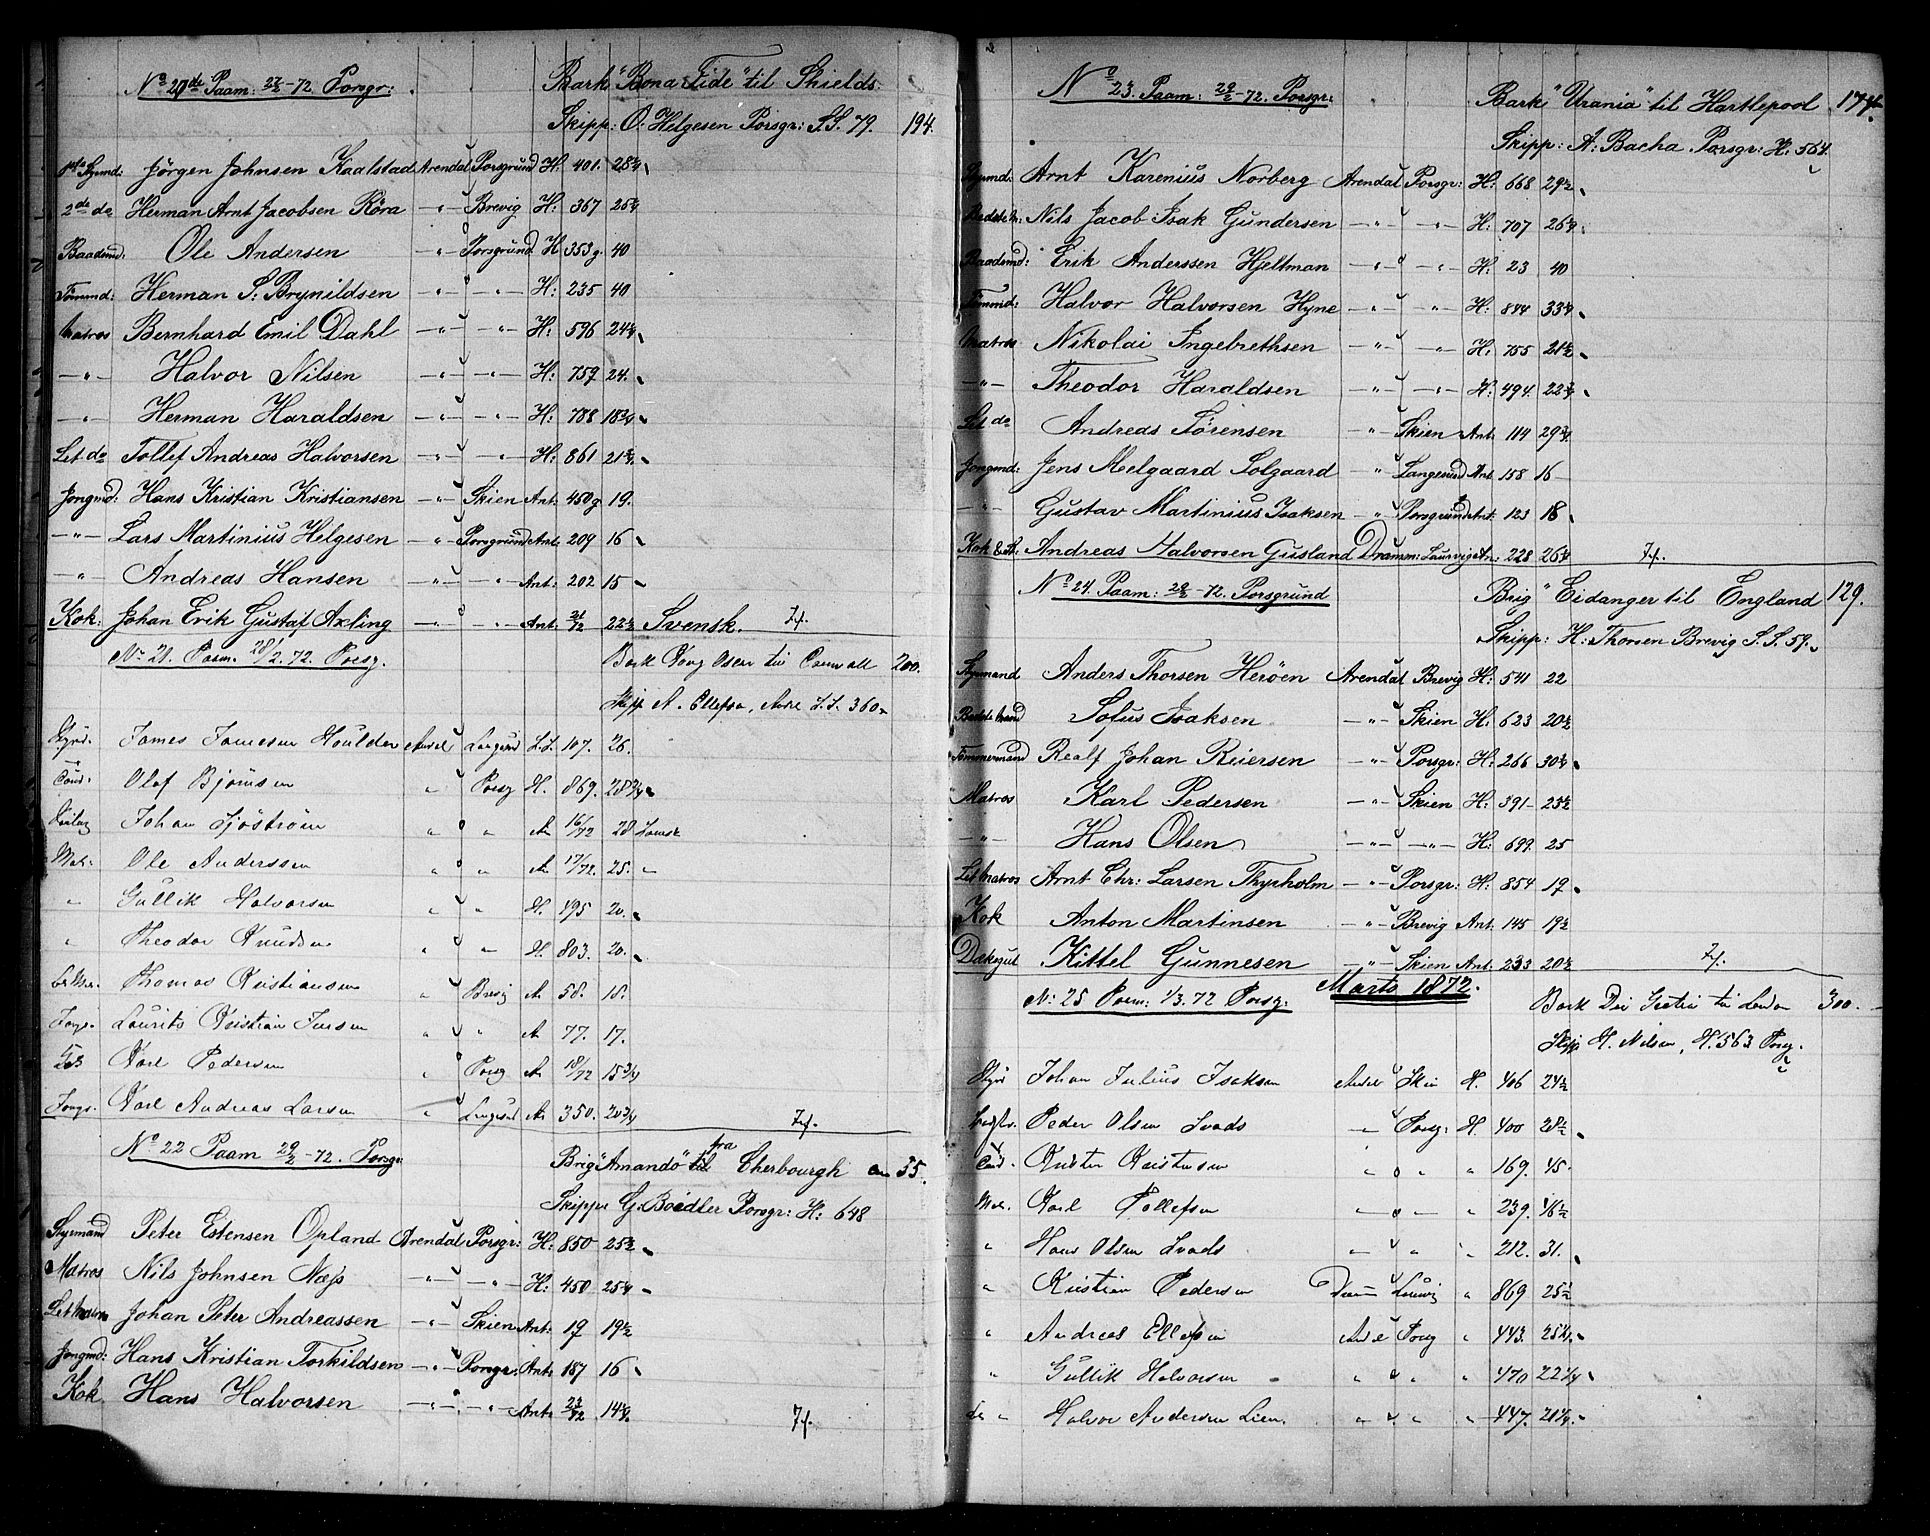 No 20de Paam: 27/2-72. Porsgr:
Bark "Bona Fide" til Shields.
Skipp: O. Helgesen Porsgr: S.S. 79. 194.
1ste Styrmd: Jörgen Johnsen Kaalstad Arendal Porsgrund H. 401. 28 3/4
2de do Herman Arnt Jacobsen Röra -"- Brevig H: 367 25 3/4
Baadsmd: Ole Andersen -"- Porsgrund H 353 g. 40
Tömmd: Herman S: Brynildsen -"- -"- H: 235 40
Matros Bernhard Emil Dahl -"- -"- H: 596 24 3/4
-"- Halvor Nilsen -"- -"- H: 759 24.
-"- Herman Haraldsen -"- -"- H: 788 18 3/4
Let do Tollef Andreas Halvorsen -"- -"- H: 861 21 3/4
Jongmd: Hans Kristian Kristiansen -"- Skien Ant. 450 g 19.
-"- Lars Martinius Helgesen -"- Porsgrund Ant: 209 16
-"- Andreas Hansen -"- -"- Ant: 202 15
Kok: Johan Erik Gustaf Axling -"- -"- Ant. 21/72 22 1/2 Svensk. 7/4.
No 21. Paam. 28/2. 72. Porsg.
Bark Kong Oscar til Cornwall 200.
Skipp A. Ellefsen, Arendl S.S. 360
Styrd. James Jamesen Houlder Arendl Langesd S.S. 107. 26.
Cond. Olaf Björnsen " Porsg H. 869. 28 3/4
Johan Sjöström " " An 16/72 28 Svensk
Mat. Ole Anderssen " " An 17/72. 25. "
" Gullik Halvorsen " " H. 495 20.
" Theodor Knudsen " " H. 803. 20.
Thomas Kristiansen " Brevig A 58. 18.
Jongs. Laurits Kristian Jensen " " A 77. 17.
Karl Pedersen " Porsg An 18/72 15 3/4
Jongs. Karl Andreas Larsen " Langesd An 350. 20 3/4 7/4.
No 22 Paam 29/2-72. Porsgr:
Brig "Amanda" fra Cherbourgh 55.
Skipp: G. Boedtler Porsgr: H: 648
Styrmand Peter Estensen Opland Arendal Porsgr: H: 850 25 3/4
Matros Nils Johnsen Næss -"- -"- H: 450 25 1/4
Letmatros Johan Peter Andreassen -"- Skien Ant: 19 19 1/2
Jongmd: Hans Kristian Torkildsen -"- Porsgr: Ant: 187 16
Kok Hans Halvorsen -"- -"- Ant: 23/72 14 3/4 7/4.
No 23. Paam: 29/2-72. Porsgr:
Bark "Urania" til Hartlepool 174.
Skipp: A: Bacha Porsgr: H: 564.
Styrmd: Arnt Karenius Norberg Arendal Porsgr: H: 668 29 1/2
Nils Jacob Isak Gundersen -"- -"- H: 707 26 3/4
Baadsmd: Erik Anderssen Hjeltman -"- -"- H: 23 40
Tömmd: Halvor Halvorsen Hyne -"- -"- H: 844 33 3/4
Matros Nikolai Ingebrethsen -"- -"- H: 755 21 1/2
-"- Theodor Haraldsen -"- -"- H: 494. 22 3/4
Let do Andreas Sörensen -"- Skien Ant: 114 29 3/4
Jongmd: Jens Melgaard Solgaard -"- Langesund Ant: 158 16
-"- Gustav Martinius Isaksen -"- Porsgrund Ant: 123 18
Kok & St: Andreas Halvorsen Gusland Dramm: Laurvig An: 228 26 3/4 7/4.
No 24. Paam: 29/2-72. Porsgrund
Brig "Eidanger til England 129.
Skipp: H: Thorsen Brevig S.S. 59.
Styrmand Anders Thorsen Heröen Arendal Brevig H: 541 22
Sofus Isaksen -"- Skien H: 623 20 1/2
Tömmermand Realf Johan Reiersen -"- Porsgr: H: 266 30 3/4
Matros Karl Pedersen -"- Skien H: 391 23 1/2
-"- Hans Olsen -"- -"- H: 699. 25
Letmatros Arnt Chr: Larsen Thyrholm -"- Porsgr: H: 854 19
Kok Anton Martinsen -"- Brevig Ant: 145 19 1/2
Dæksgut Kittel Gunnesen -"- Skien Ant: 233 20 1/2 7/4.
Marts 1872.
No 25 Paam: 1/3. 72 Porsg.
Bark Dei Gratia til London 300.
Skipp H. Nilsen, H. 563 Porsg.
Styrd Johan Julius Isaksen Arendl Skien H. 406 24 1/2
Peder Olsen Svads " Porsg. H. 400 28 1/2
" " " 169. 45.
Mat. Karl Tollefsen " " " 239. 46 1/2
" Hans Olsen Svads " " " 212. 31.
" Kristian Pedersen Dram Laurvig " 869 25 1/2
" Andreas Ellefsen Arendl Porsg " 443. 25 1/4
" Gullik Halvorsen " " " 470 22 1/4
do " Halvor Andersen Lien. " " " 447. 21 1/4.